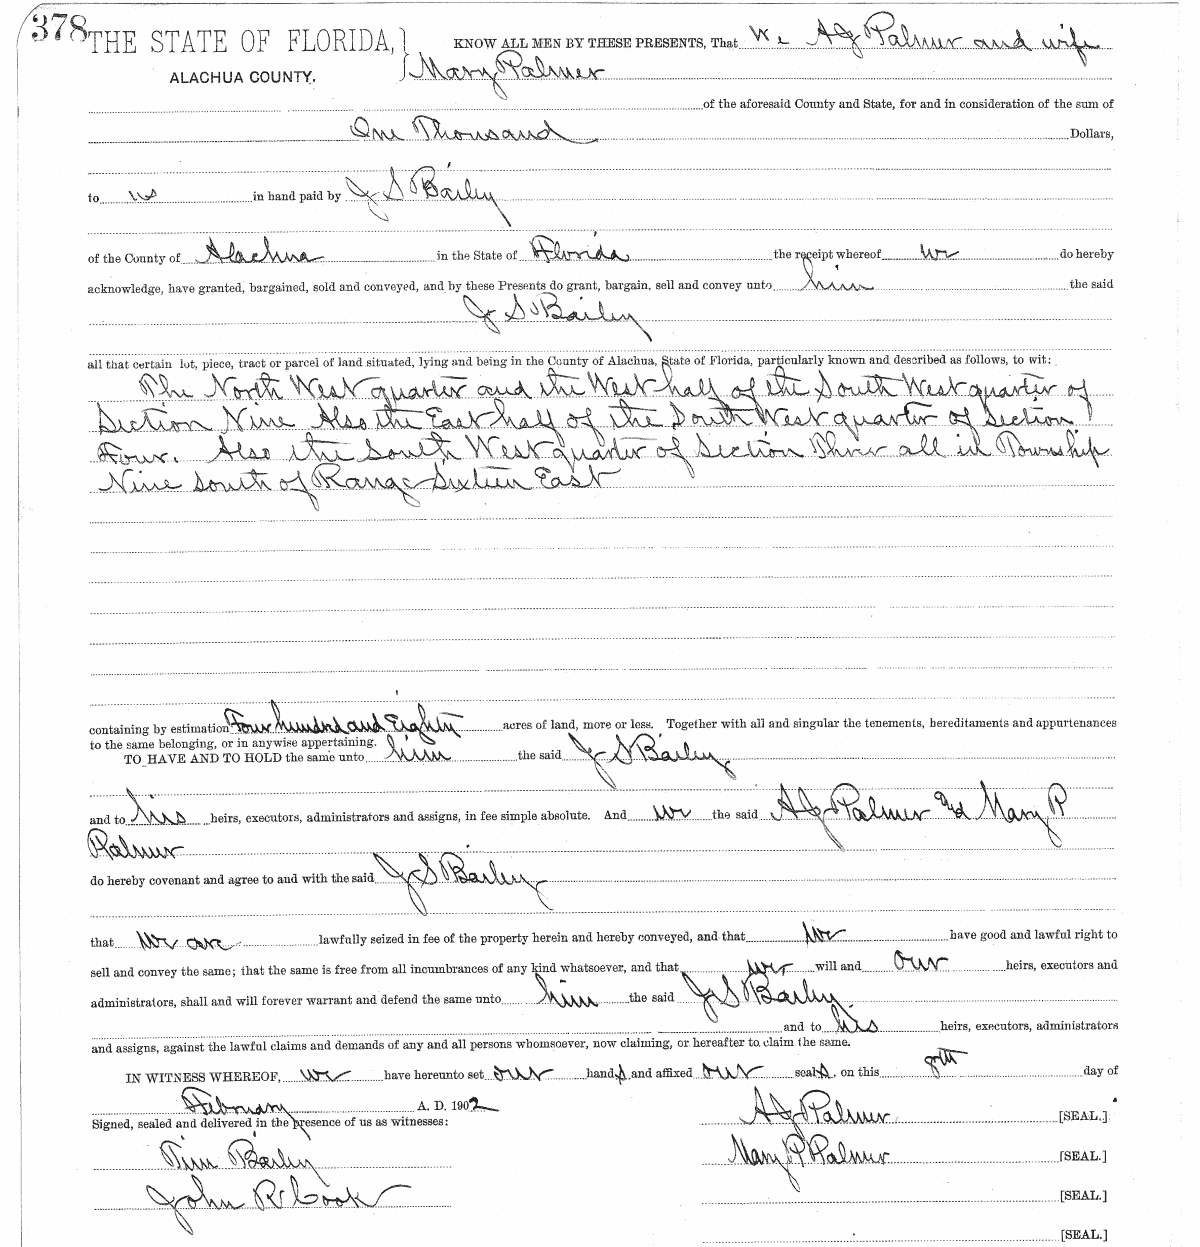 378 THE STATE OF FLORIDA, KNOW ALL MEN BY THESE PRESENTS, That We AJ Palmer and wife
ALACHUA COUNTY. Mary Palmer
of the aforesaid County and State, for and in consideration of the sum of
One Thousand Dollars,
to us in hand paid by J S Bailey
of the County of Alachua in the State of Florida the receipt whereof we do hereby
acknowledge, have granted, bargained, sold and conveyed, and by these Presents do grant, bargain, sell and convey unto him the said
J S Bailey
all that certain lot, piece, tract or parcel of land situated, lying and being in the County of Alachua, State of Florida, particularly known and described as follows, to wit:
The North West quarter and the West half of the South West quarter of
Section Nine Also the East half of the South West quarter of Section
Four. Also the South West quarter of Section Three all in Township
Nine South of Range Sixteen East
containing by estimation Four hundred and Eighty acres of land, more or less. Together with all and singular the tenements, hereditaments and appurtenances
to the same belonging, or in anywise appertaining.
TO HAVE AND TO HOLD the same unto him the said J S Bailey
and to his heirs, executors, administrators and assigns, in fee simple absolute. And we the said AJ Palmer and Mary P
Palmer
do hereby covenant and agree to and with the said J S Bailey
that we are lawfully seized in fee of the property herein and hereby conveyed, and that we have good and lawful right to
sell and convey the same; that the same is free from all incumbrances of any kind whatsoever, and that we will and our heirs, executors and
administrators, shall and will forever warrant and defend the same unto him the said J S Bailey
and to his heirs, executors, administrators
and assigns, against the lawful claims and demands of any and all persons whomsoever, now claiming, or hereafter to claim the same.
IN WITNESS WHEREOF, we have hereunto set our hands and affixed our seals, on this day of
February A. D. 1902
Signed, sealed and delivered in the presence of us as witnesses: AJ Palmer [SEAL.]
Tim Bailey Mary P Palmer [SEAL.]
John R Cook [SEAL.]
[SEAL.]